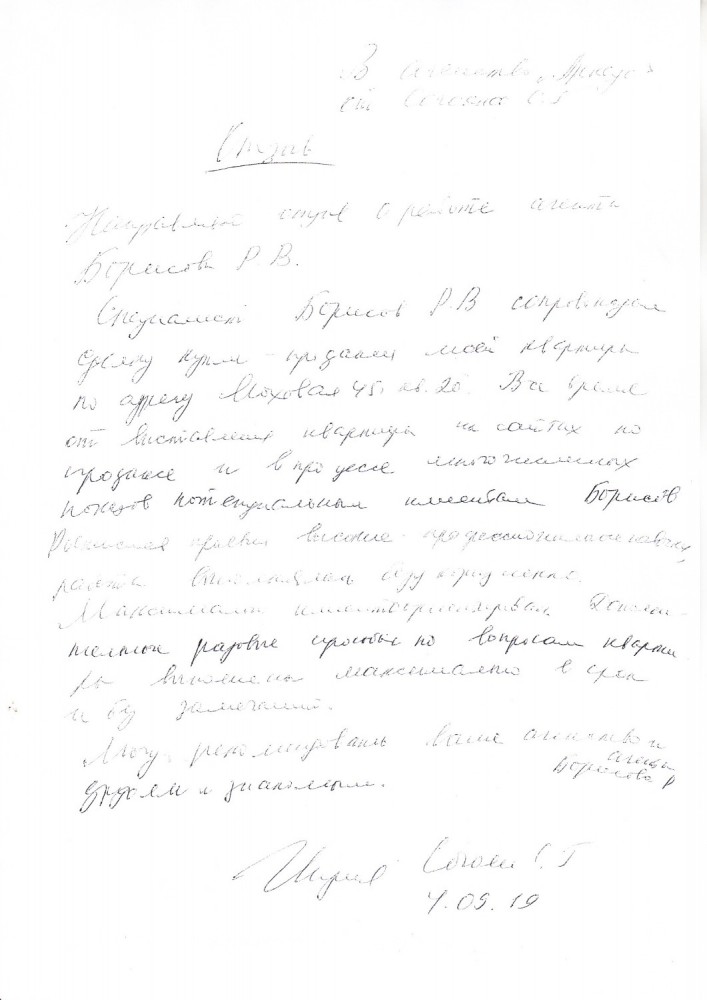 В агентство
от С.Г
Отзыв
Направляю отзыв о работе агента
Борисова Р.В.
Специалист Борисов Р.В сопровождал
сделку купли-продажи моей квартиры
по адресу Моховая 45, кв. 20. Во время
от выставления квартиры на сайтах по
продаже и в процессе многочисленных
показов потенциальным клиентам Борисов
проявил высокие профессиональные навыки,
работа выполнялась безукоризненно.
Максимально клиентоориентирован. Дополни-
тельные разовые просьбы по вопросам кварти-
ры выполнены максимально в срок
и без замечаний.
Могу рекомендовать ваше агентство и
агента
Борисова Р
друзьям и знакомым.
С.Г
4.09.19